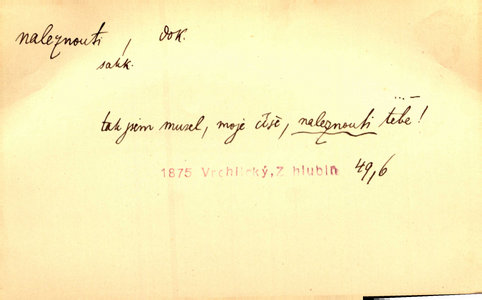 naleznouti, dok.
sakk.
tak jsem musel, moje číše, naleznouti tebe!
1875 Vrchlický, Z hlubin 49,6